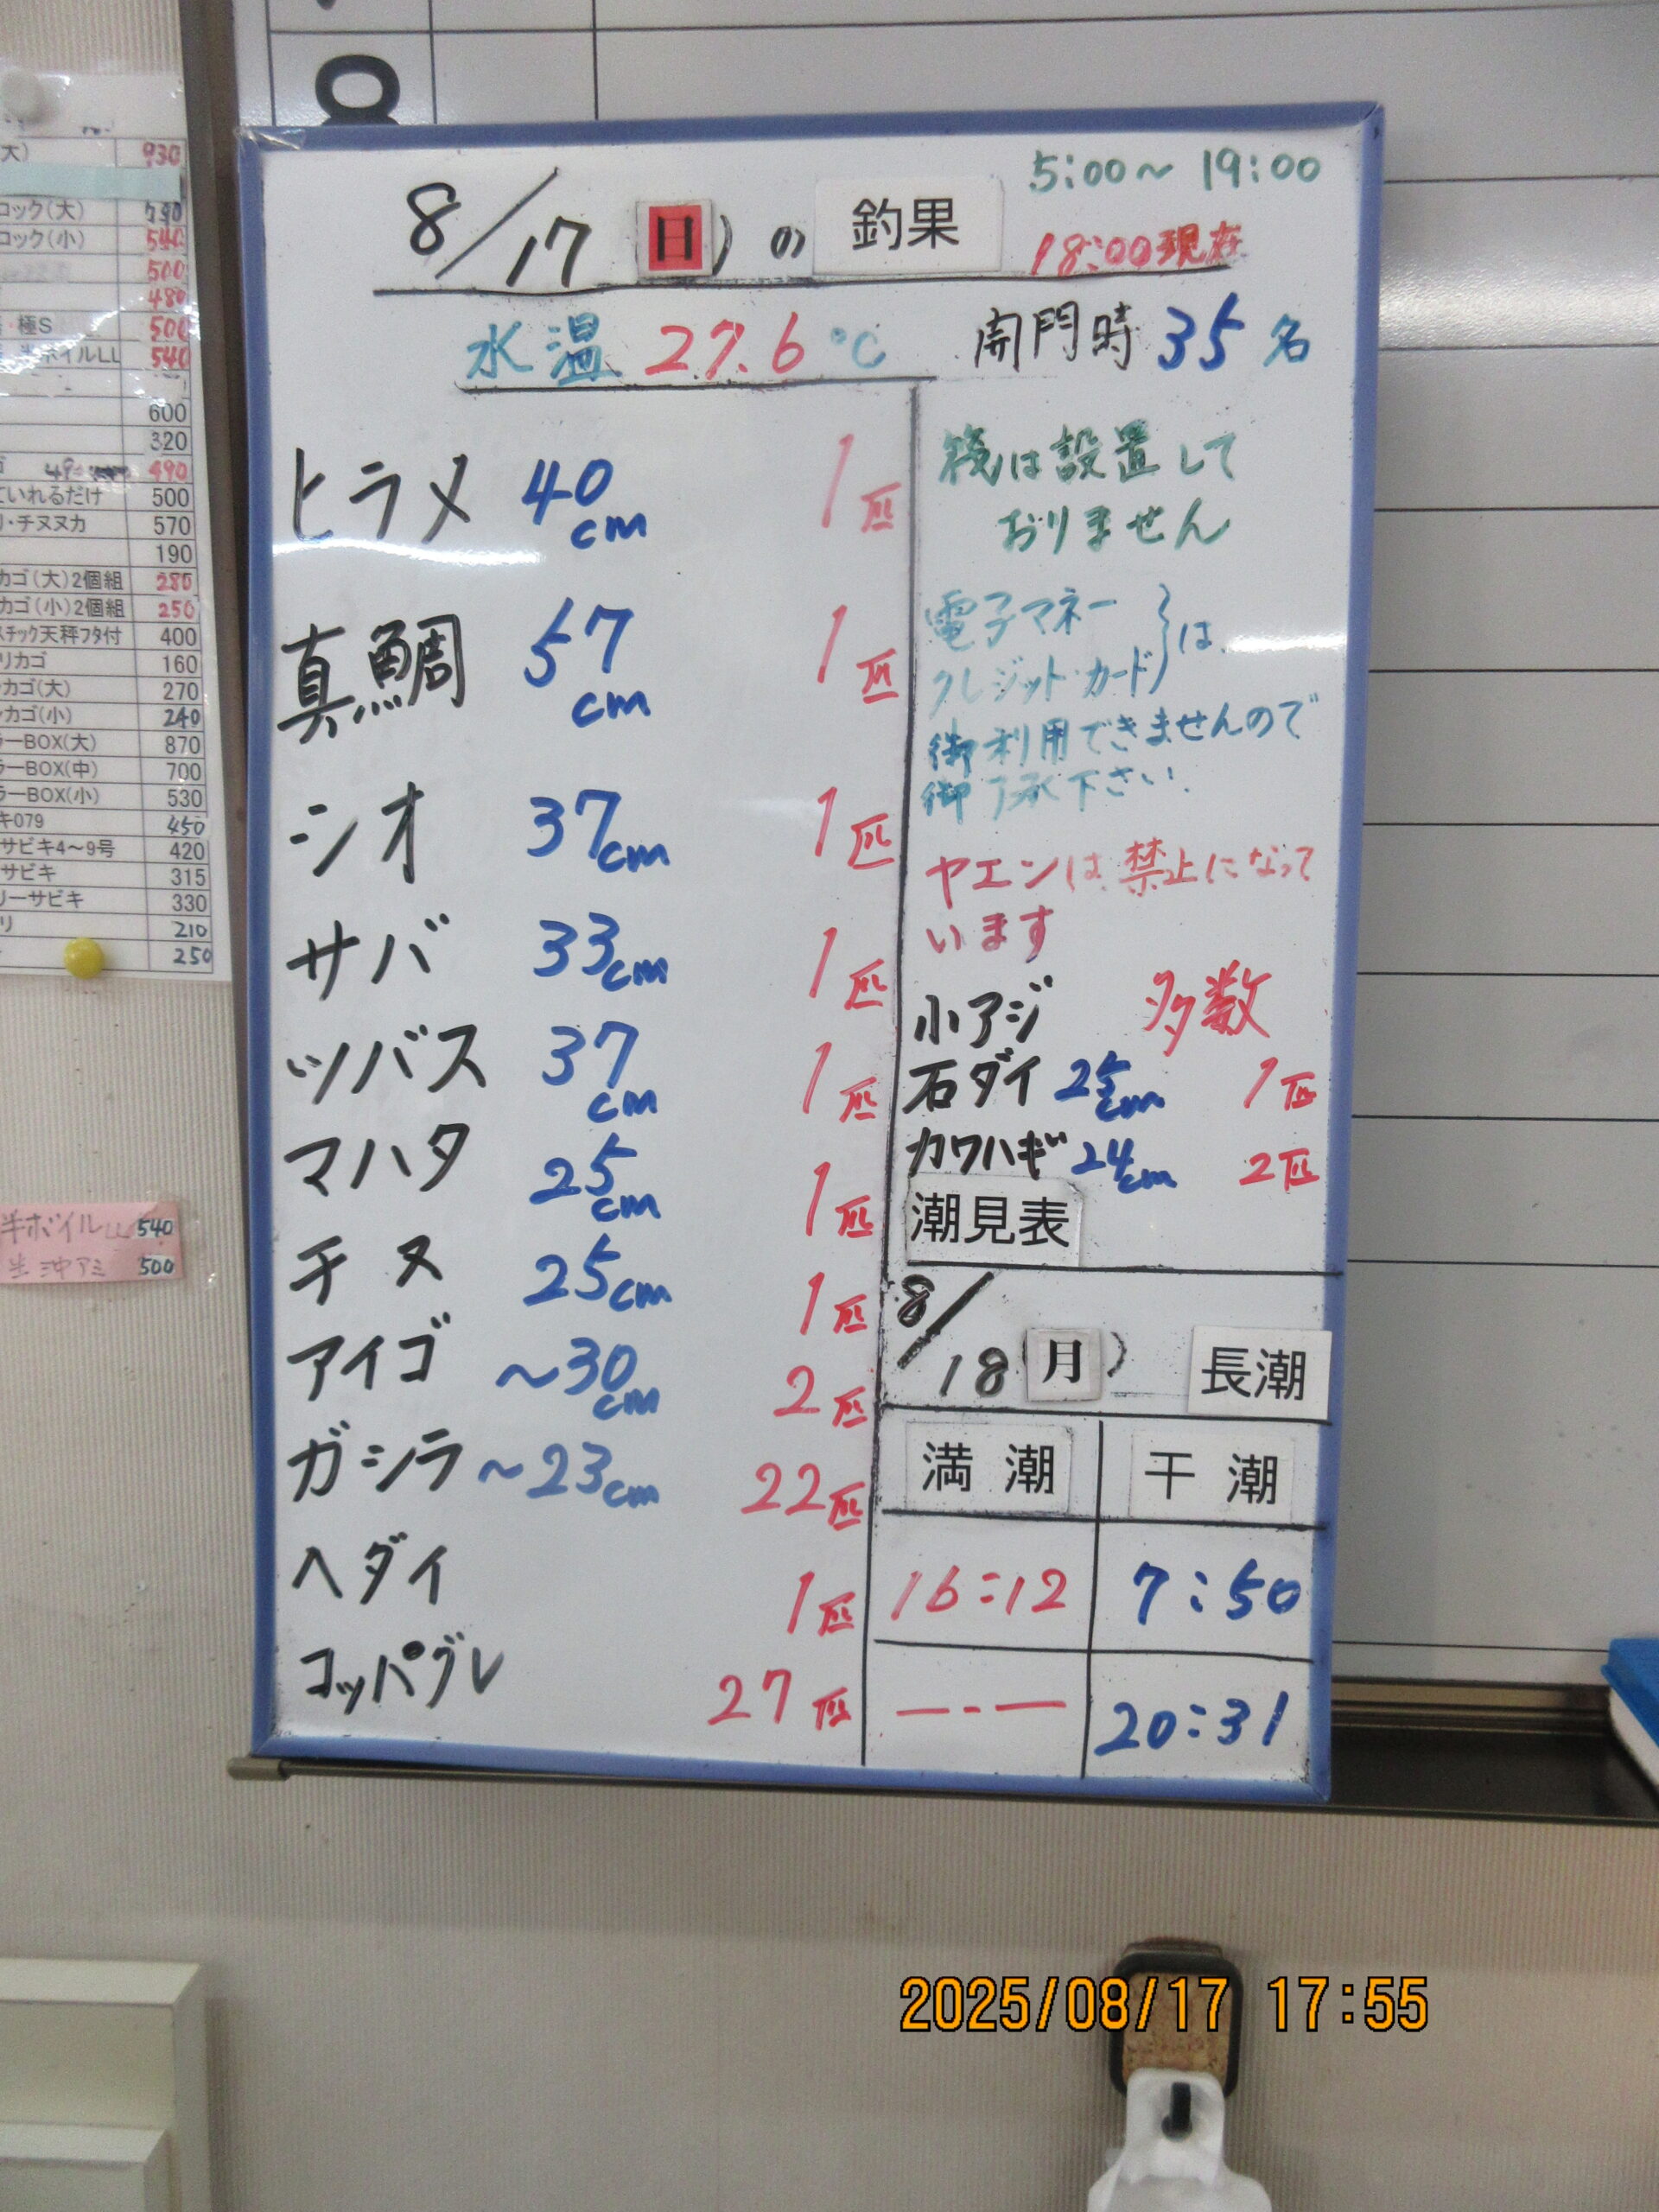 大) 930
コック(大) 790
コック(小) 540
500
480
極S 500
半ボイルLL 540
600
320
490
ていれるだけ 500
リ・チヌヌカ 570
190
カゴ(大)2個組 280
カゴ(小)2個組 250
スチック天秤フタ付 400
リカゴ 160
カゴ(大) 270
カゴ(小) 240
ラーBOX(大) 870
ラーBOX(中) 700
ラーBOX(小) 530
キ079 450
サビキ4～9号 420
サビキ 315
リーサビキ 330
リ 210
250
半ボイルLL 540
生沖アミ 500
5:00～19:00
8/17 日) の 釣果
18:00現在
水温 27.6℃ 開門時 35名
ヒラメ 40cm 1匹
真鯛 57cm 1匹
シオ 37cm 1匹
サバ 33cm 1匹
ツバス 37cm 1匹
マハタ 25cm 1匹
チヌ 25cm 1匹
アイゴ ～30cm 2匹
ガシラ ～23cm 22匹
ヘダイ 1匹
コッパグレ 27匹
筏は設置して
おりません
電子マネー
クレジット・カード}は
御利用できませんので
御了承下さい.
ヤエンは禁止になって
います
小アジ 多数
石ダイ 25cm 1匹
カワハギ 24cm 2匹
潮見表
8/18(月) 長潮
満潮 干潮
16:12 7:50
—--— 20:31
2025/08/17 17:55